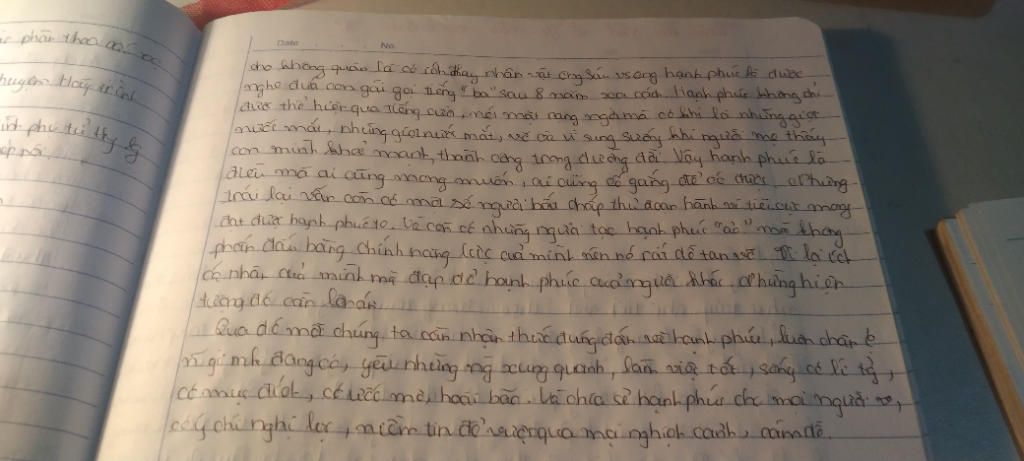 phân theo các
Date No.
cho không quên là có
nghe đứa con gái gọi tiếng "ba" sau 8 năm xa cách. Hạnh phúc không chỉ
được thể hiện qua tiếng cười, nét mặt rạng ngời mà có khi là những giọt
nước mắt, những giọt nước mắt, vỡ òa vì sung sướng khi người mẹ thấy
con mình khỏe mạnh, thành công trong đường đời. Vậy hạnh phúc là
điều mà ai cũng mong muốn, ai cũng cố gắng để có được. Nhưng
trái lại vẫn còn có một số người bất chấp thủ đoạn hành vi tiêu cực mong
đạt được hạnh phúc to. Và còn có những người tạo hạnh phúc "ảo" mà không
phấn đấu bằng chính năng lực của mình nên nó rất dễ tan vỡ. Vì lợi ích
cá nhân của mình mà đạp đổ hạnh phúc của người khác. Những hiện
tượng đó cần lên án.
Qua đó mỗi chúng ta cần nhận thức đúng đắn về hạnh phúc, luôn trân
gì mh đang có, yêu những ng xung quanh, làm việc tốt, sống có lí tg,
có mục đích, có ước mơ, hoài bão. Và chia sẻ hạnh phúc cho mọi người
có ý chí nghị lực, niềm tin để vượt qua mọi nghịch cảnh, cám dỗ.